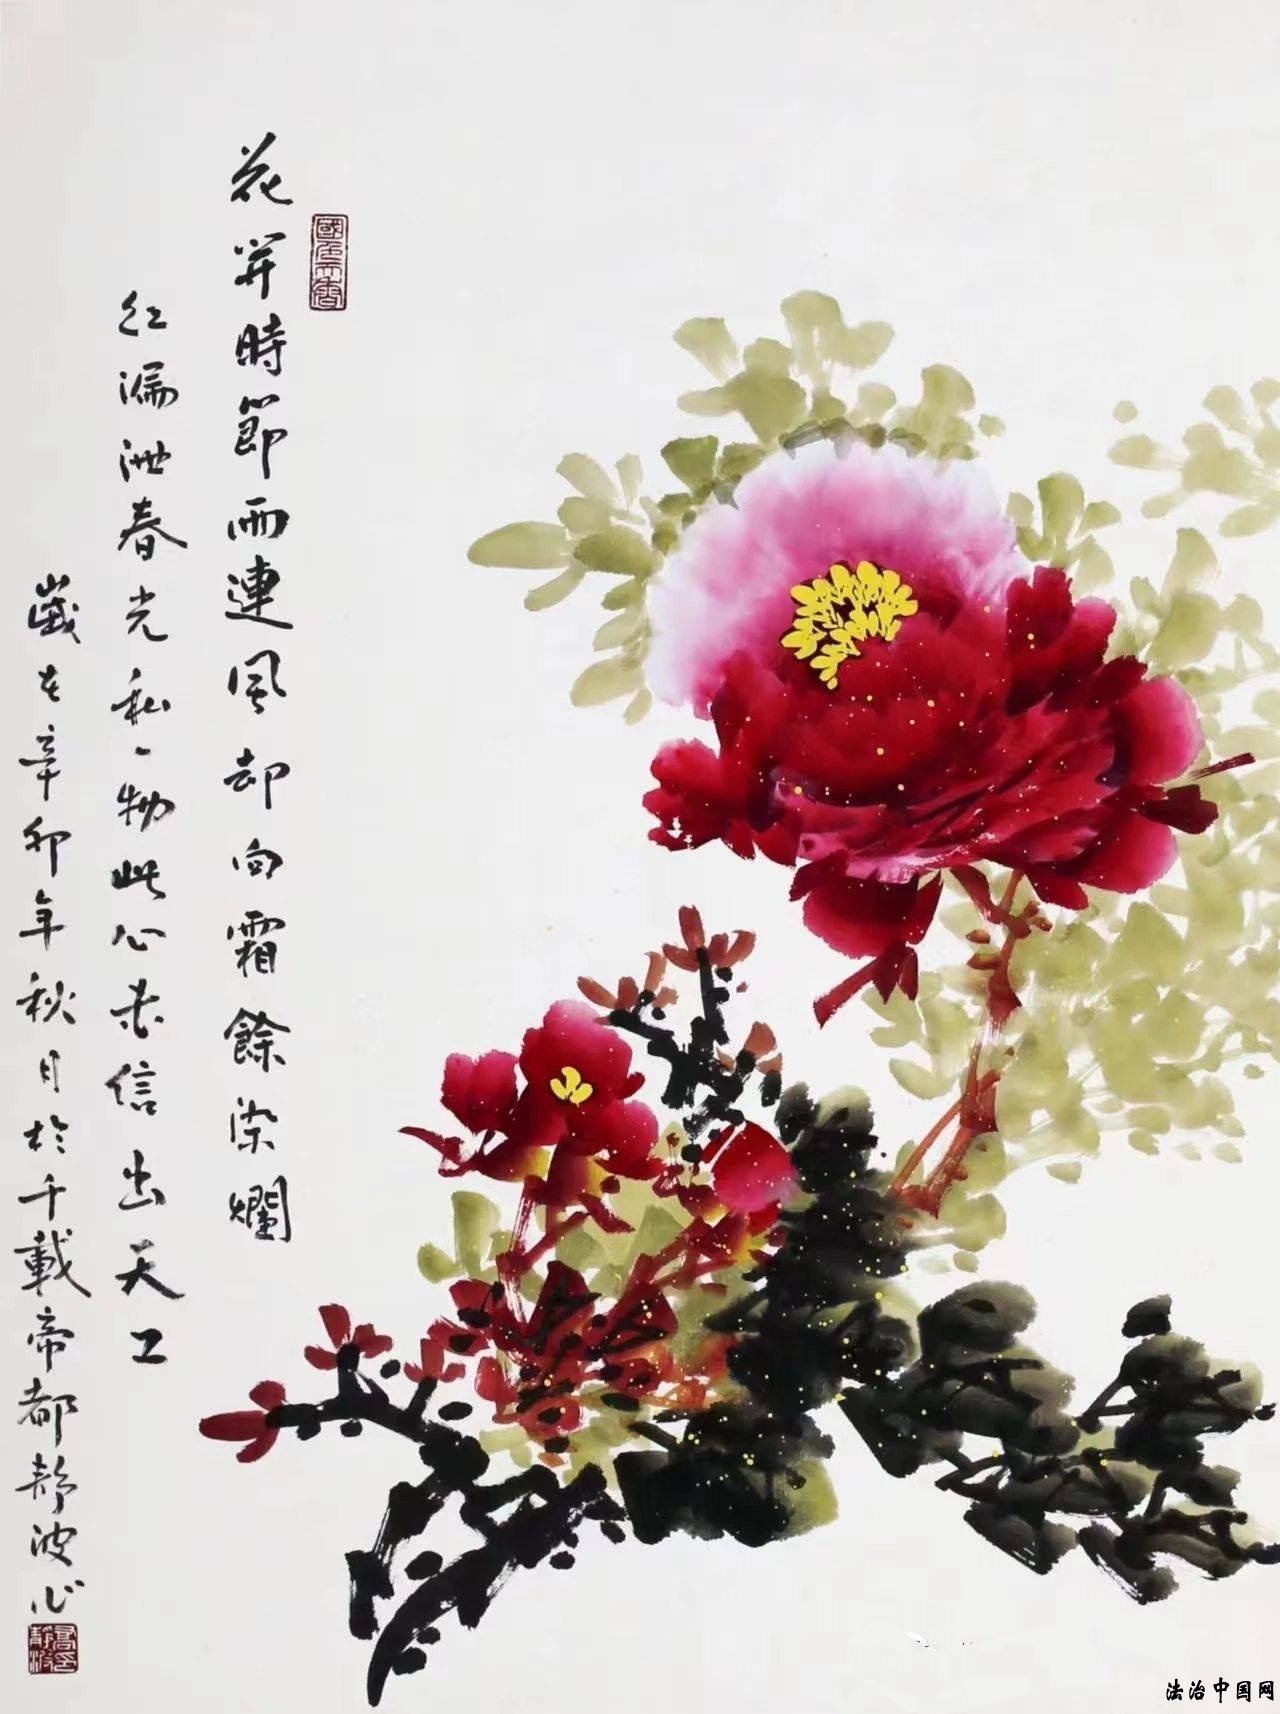 國色天香
花開時節雨連風却向霜餘染爛
红漏泄春光私一物此心未信出天工
歲在辛卯年秋月於千載帝都静波心
静波
法治中国网